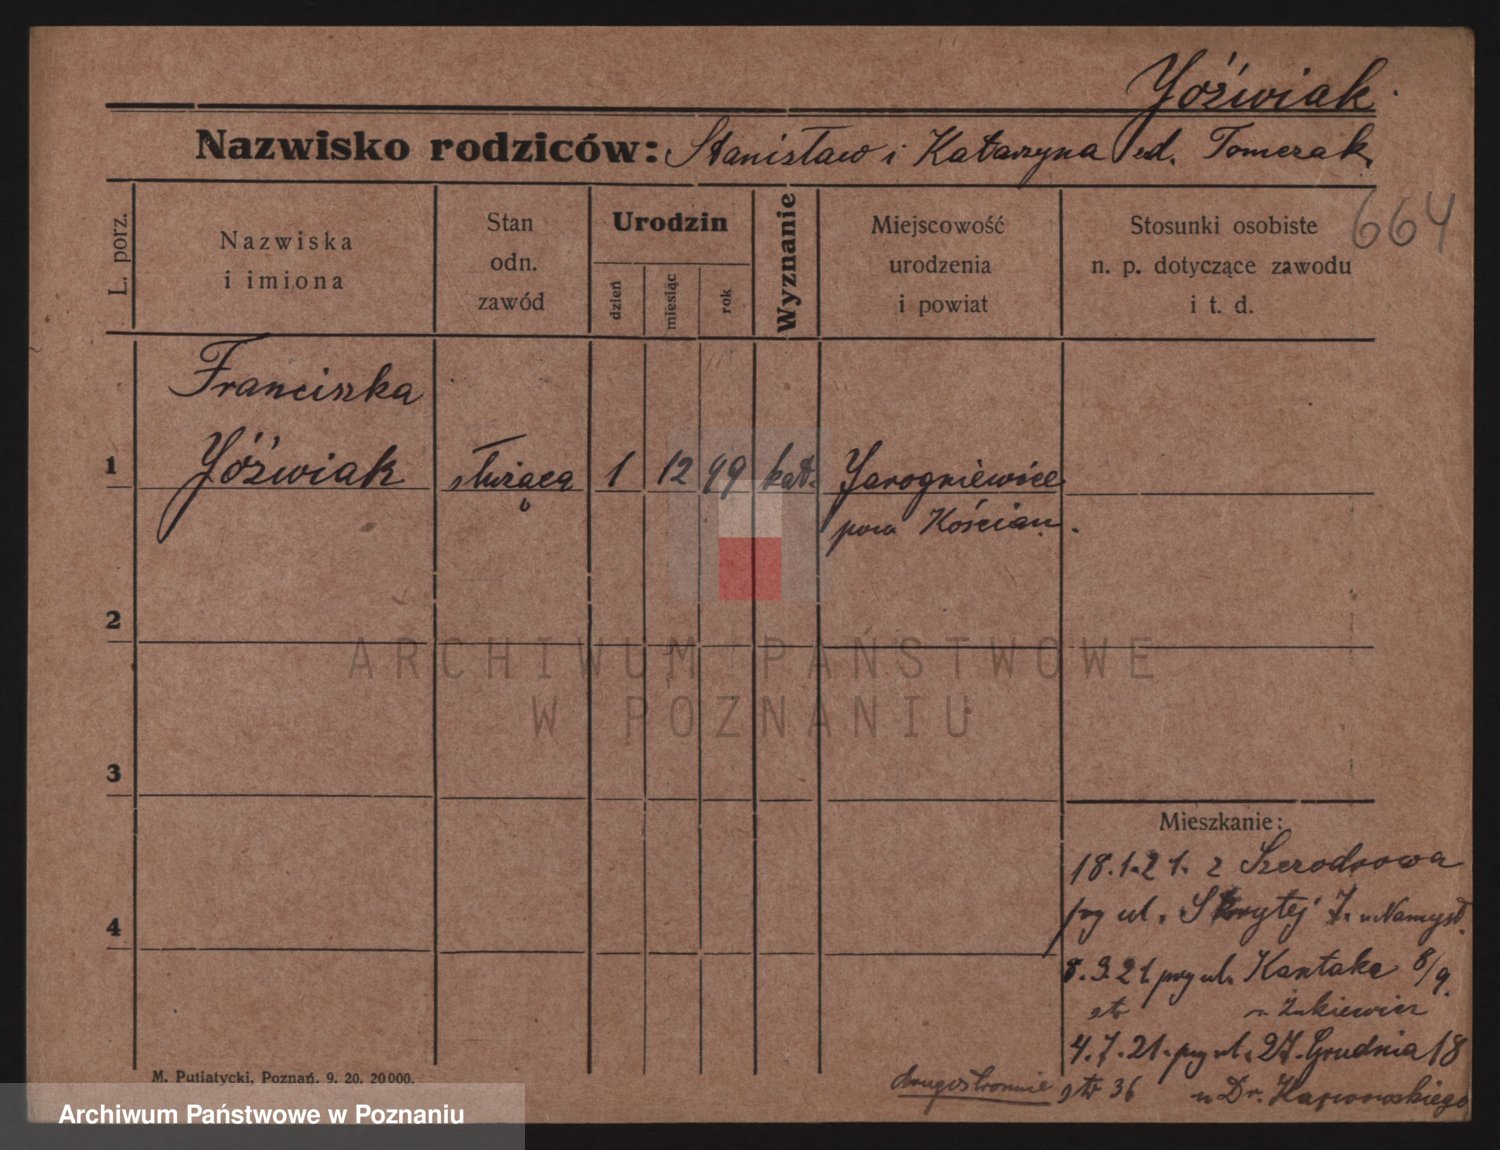 Jóźwiak
Nazwisko rodziców: Stanisław i Katarzyna Tomczak
664
L. porz.
Nazwiska
i imiona
Stan
odn.
zawód
Urodzin
dzień
miesiąc
rok
Wyznanie
Miejscowość
urodzenia
i powiat
Stosunki osobiste
n. p. dotyczące zawodu
i t. d.
Franciszka
1 Jóźwiak służąca 1 12 99 kat. Jarogniewice
pow Kościan.
2
3
4
ARCHIWUM PAŃSTWOWE
W POZNANIU
Mieszkanie:
18.1.21. z
przy ul. Skrytej 7.
8.3.21. przy ul. Kantaka 8/9.
str
4.7.21. przy ul. 27. Grudnia 18
drugostronnie str 36 u Dr.
M. Putiatycki, Poznań. 9. 20. 20000.
Archiwum Państwowe w Poznaniu